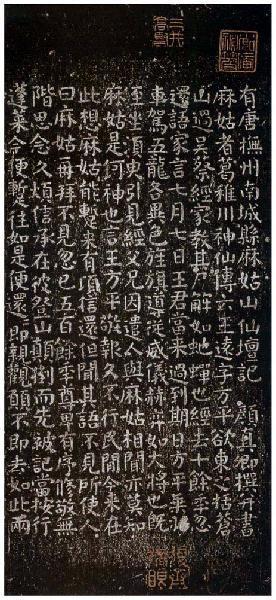 有唐撫州南城縣麻姑山仙壇記 顏真卿撰并書
麻姑者葛稚川神仙傳云王遠字方平欲東之括蒼
山過吳蔡經家教其尸解如虵蟬也經去十餘年忽
還語家言七月七日王君當來過到期日方平乘羽
車駕五龍各異色旌旗導從威儀赫弈如大將也既
至坐須臾引見經父兄因遣人與麻姑相聞亦莫知
麻姑是何神也言王方平敬報久不行民間今來在
此想麻姑能蹔來有頃信還但聞其語不見所使人
曰麻姑再拜不見忽已五百餘年尊卑有序修敬無
階思念久煩信承在彼登山顛倒而先被記當按行
蓬萊今便蹔往如是便還即親觀願不即去如此兩